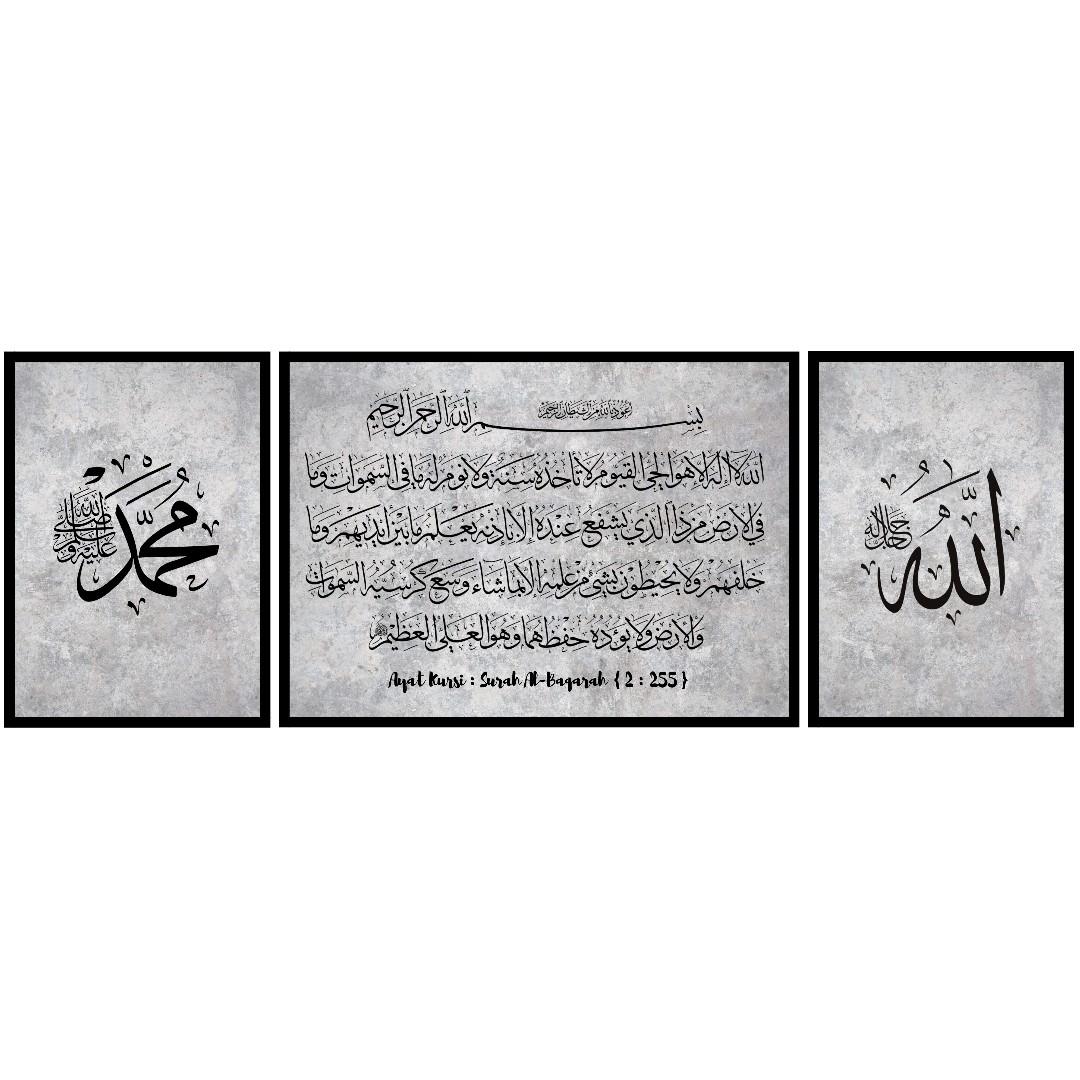 الله جل جلاله
أعوذ بالله من الشيطان الرجيم
بسم الله الرحمن الرحيم
الله لا إله إلا هو الحي القيوم لا تأخذه سنة ولا نوم له ما في السموات وما
في الأرض من ذا الذي يشفع عنده إلا بإذنه يعلم ما بين أيديهم وما
خلفهم ولا يحيطون بشيء من علمه إلا بما شاء وسع كرسيه السموات
والأرض ولا يؤوده حفظهما وهو العلي العظيم
Ayat Kursi : Surah Al-Baqarah { 2 : 255 }
محمد صلى الله عليه وسلم